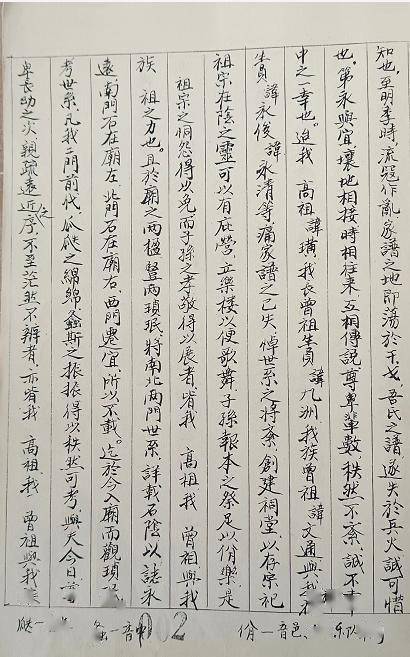 知也至明季時流寇作亂家譜之地即蕩於干戈吾氏之譜遂失於兵火誠可惜
也第永興宜壤地相接時相往來互相傳說尊卑輩數秩然不紊誠不幸
中之一幸也迨我 高祖諱璜我長曾祖生員 諱九洲我族曾祖諱文通與我
生員 諱永俊 諱永清等痛家譜之已失悼世系之將紊創建祠堂以存宗祀
祖宗在陰之靈可以有庇營立樂楼以便歌舞子孫報本之祭足以俏樂是
祖宗之恫怨得以免而子孫之孝敬得以展者皆我 高祖我 曾祖與我
族 祖之力也且於廟之两楹豎两瑣珉將南北两門世系詳載石陰以誌永
遠南門石在廟左北門石在廟右西門還宜所以不載迄於今入廟而觀瑣珉
考世系凡我二門前代瓜瓞之綿綿螽斯之振振得以秩然可考與夫今日
卑長幼之次親疏遠近之序不至茫然不辨者亦皆我 高祖我 曾祖與我
瓞一 螽一音中 002 佾一音邑 乐队